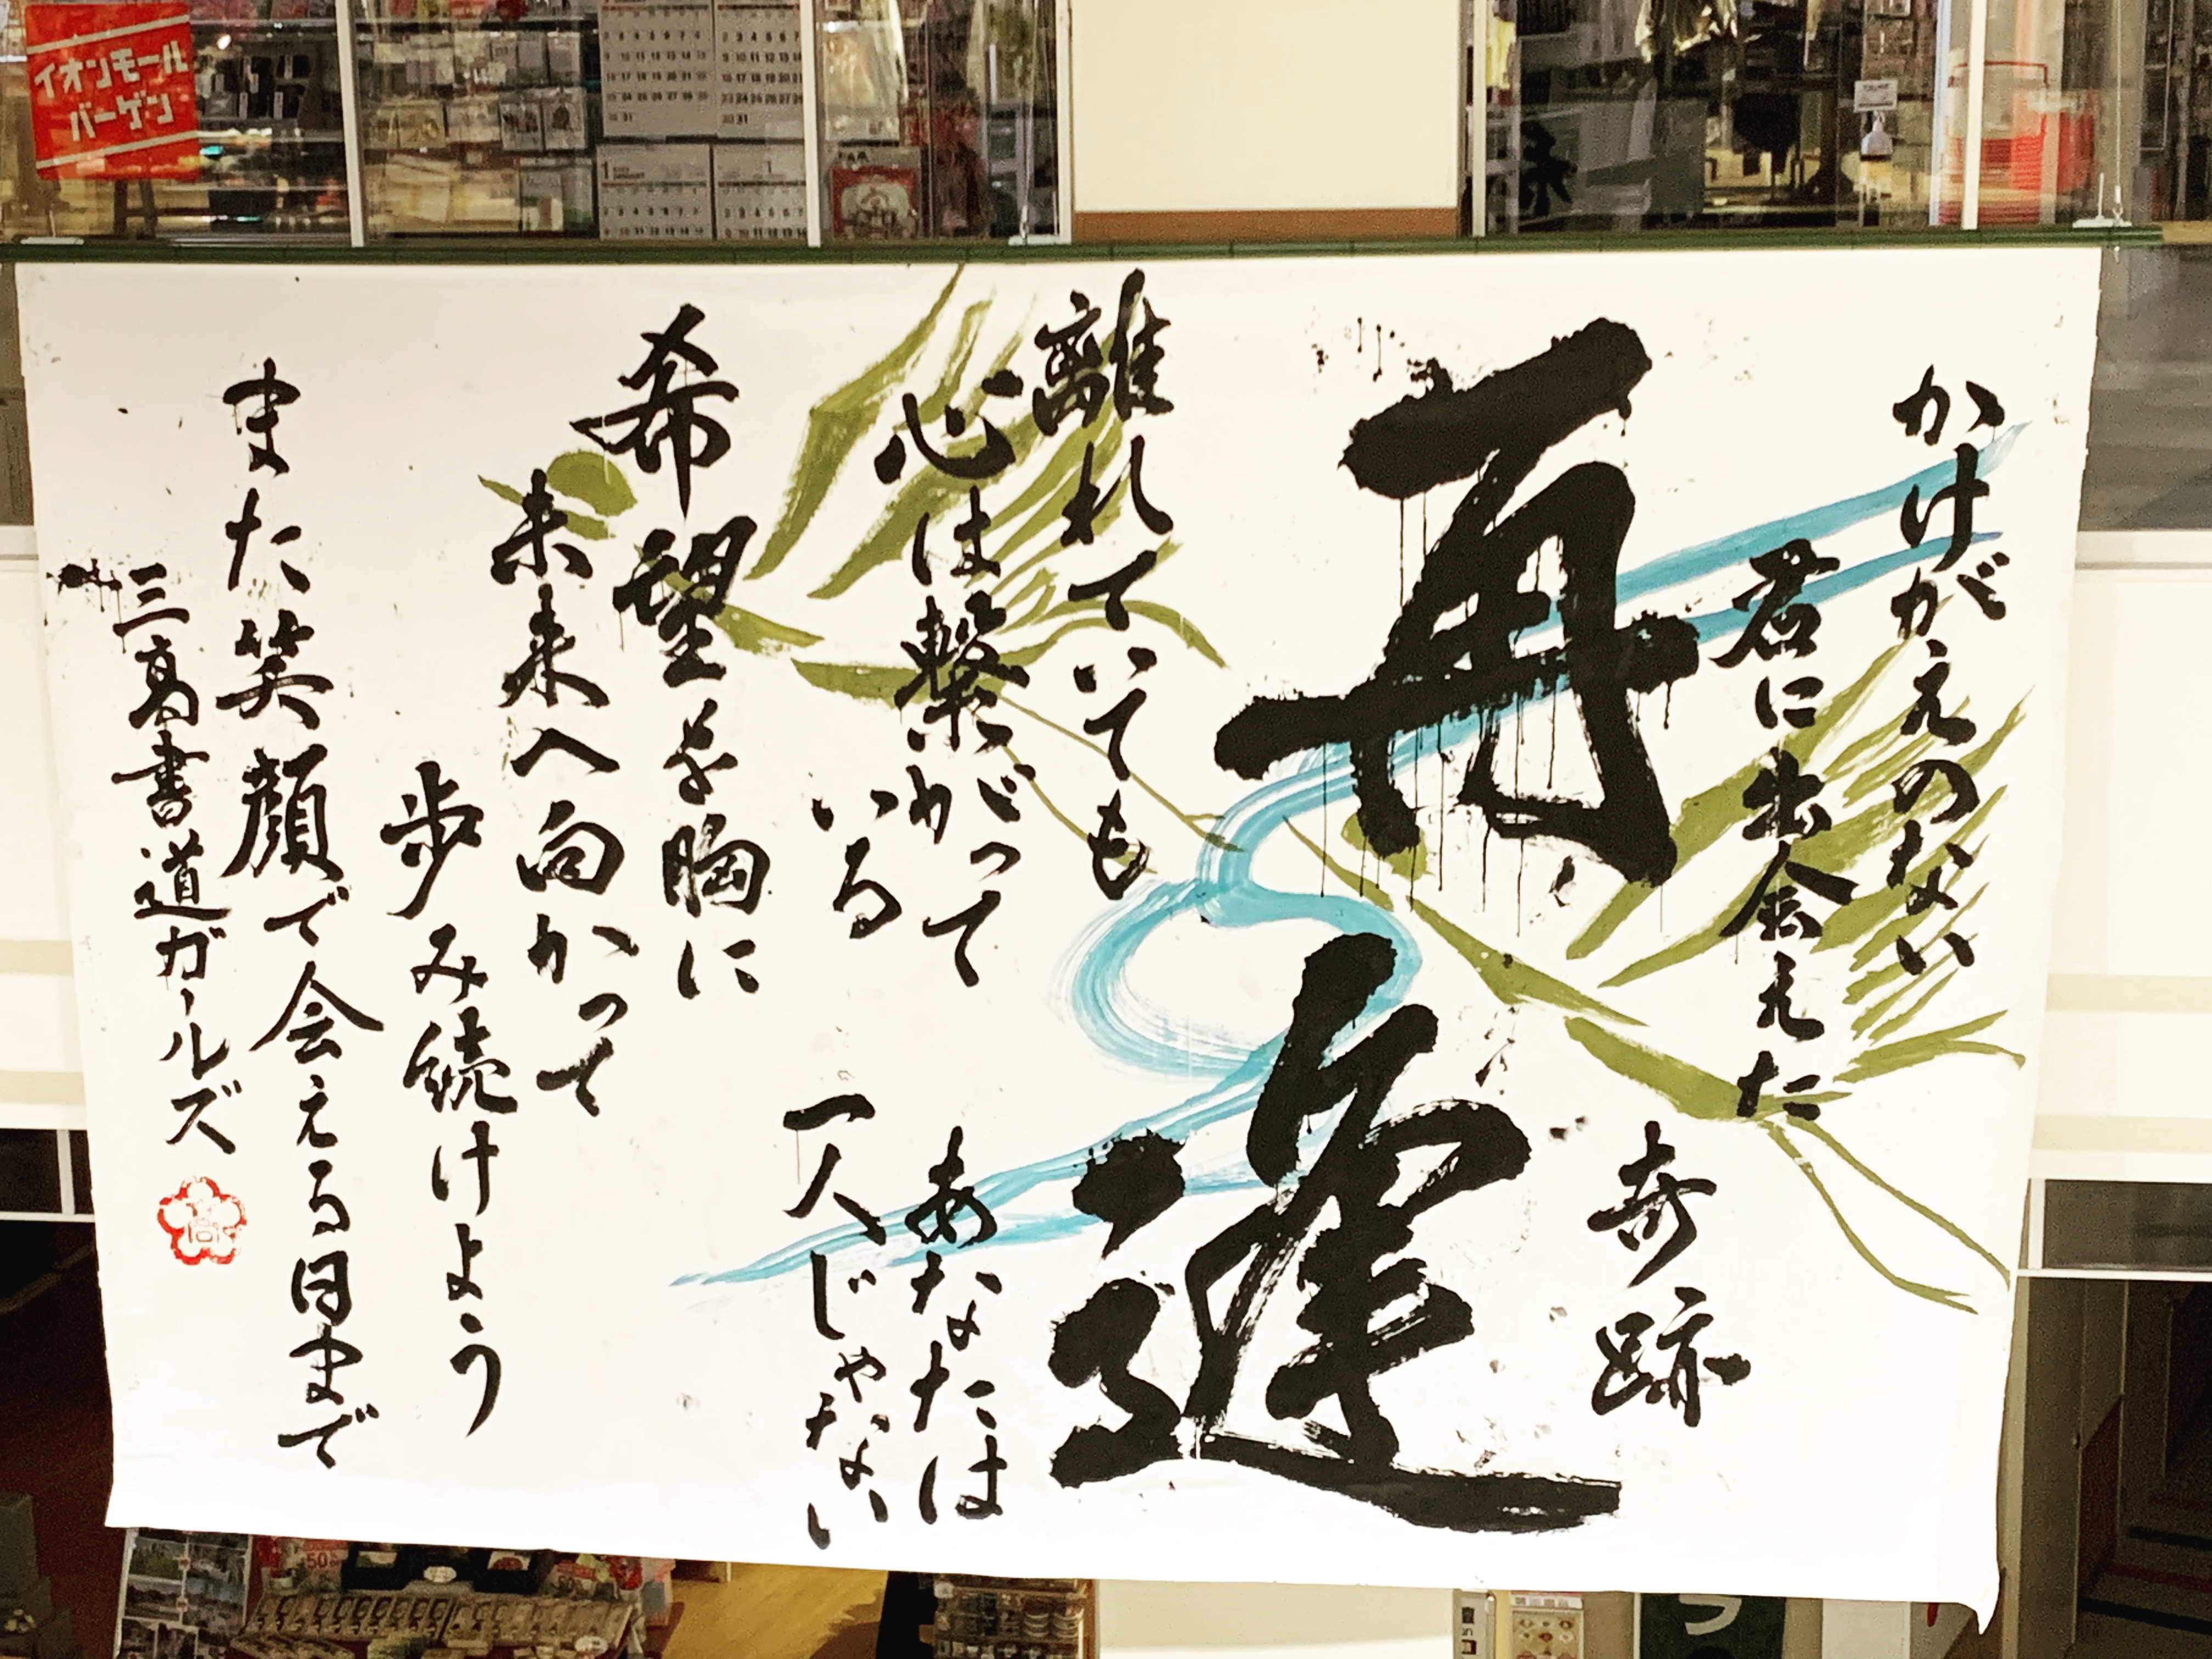 イオンモール
バーゲン
かけがえのない
君に出会えた
奇跡
再逢
離れていても
心は繋がって
いる
あなたは
一人じゃない
希望を胸に
未来へ向かって
歩み続けよう
また笑顔で会える日まで
三高書道ガールズ